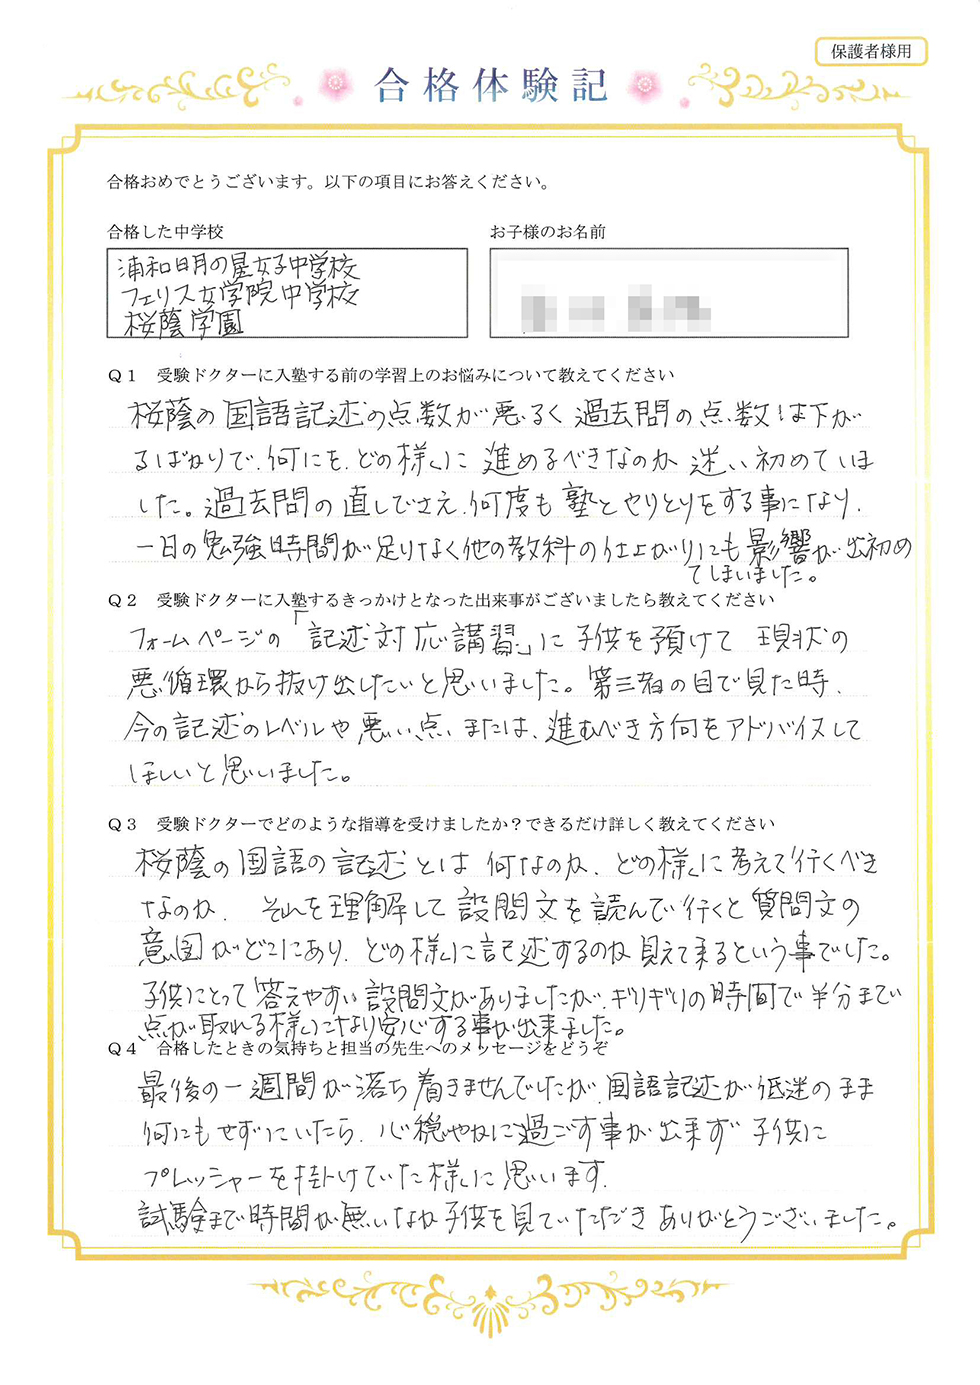 保護者様用
合格体験記
合格おめでとうございます。以下の項目にお答えください。
合格した中学校
お子様のお名前
浦和明の星女子中学校
フェリス女学院中学校
桜蔭学園
Q1 受験ドクターに入塾する前の学習上のお悩みについて教えてください
桜蔭の国語記述の点数が悪るく過去問の点数は下が
るばかりで、何にを、どの様に進めるべきなのか迷い初めていま
した。過去問の直しでさえ、何度も塾とやりとりをする事になり、
一日の勉強時間が足りなく他の教科の仕上がりにも影響が出初め
てしまいました。
Q2 受験ドクターに入塾するきっかけとなった出来事がございましたら教えてください
フォームページの「記述対応講習」に子供を預けて現状の
悪循環から抜け出したいと思いました。第三者の目で見た時、
今の記述のレベルや悪い点、または、進むべき方向をアドバイスして
ほしいと思いました。
Q3 受験ドクターでどのような指導を受けましたか？できるだけ詳しく教えてください
桜蔭の国語の記述とは何なのか、どの様に考えて行くべき
なのか、それを理解して設問文を読んで行くと質問文の
意図がどこにあり、どの様に記述するのか見えて来るという事でした。
子供にとって答えやすい設問文がありましたが、ギリギリの時間で半分まで
点が取れる様になり安心する事が出来ました。
Q4 合格したときの気持ちと担当の先生へのメッセージをどうぞ
最後の一週間が落ち着きませんでしたが、国語記述が低迷のまま
何にもせずにいたら、心穏やかに過ごす事が出来ず子供に
プレッシャーを掛けていた様に思います。
試験まで時間が無いなか子供を見ていただきありがとうございました。